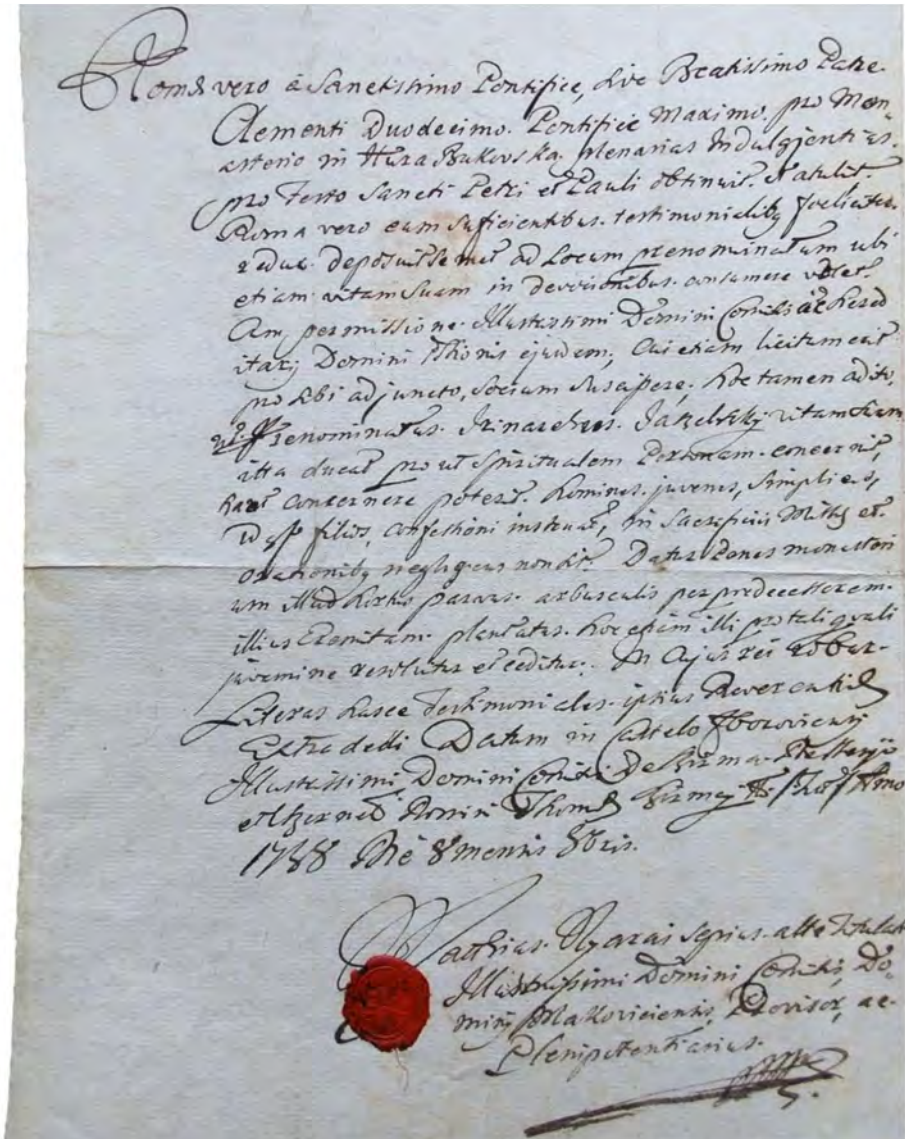 Romæ vero à Sanctissimo Pontifice, sive Beatissimo Patre
Clementi Duodecimo. Pontifice Maximo. pro Mon-
asterio in Hura Bukovska. plenarias Indulgentias.
pro Festo Sancti Petri et Pauli obtinuit. et attulit.
Roma vero cum suficientibus. testimonialibq foeliciter.
redux. deposuit semet ad Locum prenominatum ubi
etiam vitam suam in devocionibus. consumere vellet.
Cum permissione. Illustrissimi Domini Comitis ac Hæred
itarij Domini Thonis ejusdem, Cui etiam licitum erit
pro sibi adjuncto, Socium suscipere, hoc tamen adito,
ut prenominatus. vitam suam
itta ducat prout Spiritualem Personam. concernit,
concernere poterit. homines. juvenes, simplices,
filios, confessioni instruat, in Sacrificiis Missę et.
orationibq negligens non sit. Datur penes monasteri
um illud hortus parvus. arbusculis per predecessorem.
illius Eremitam. plantatus. hoc etiam illi pro tali quali
juvamine resolvitur et ceditur. In Cujus rei robur.
Literas hasce Testimoniales. ipsius
Extradedi Datum in Castelo Zboroviensi
Illustrissimi Domini Comitis De Szirma
Domini Thomæ Szirmay
1738 Die 8 mensis 8bris.
Matthias. Nyarai sepius. alte titulati
Illustrissimi Domini Comitis, Do-
minij Makoviciensis, Provisor, ac-
Plenipotentiarius.